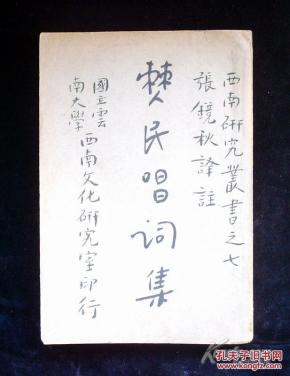 西南研究叢書之七
張鏡秋譯註
僰民唱词集
國立雲南大學西南文化研究室印行
孔夫子旧书网